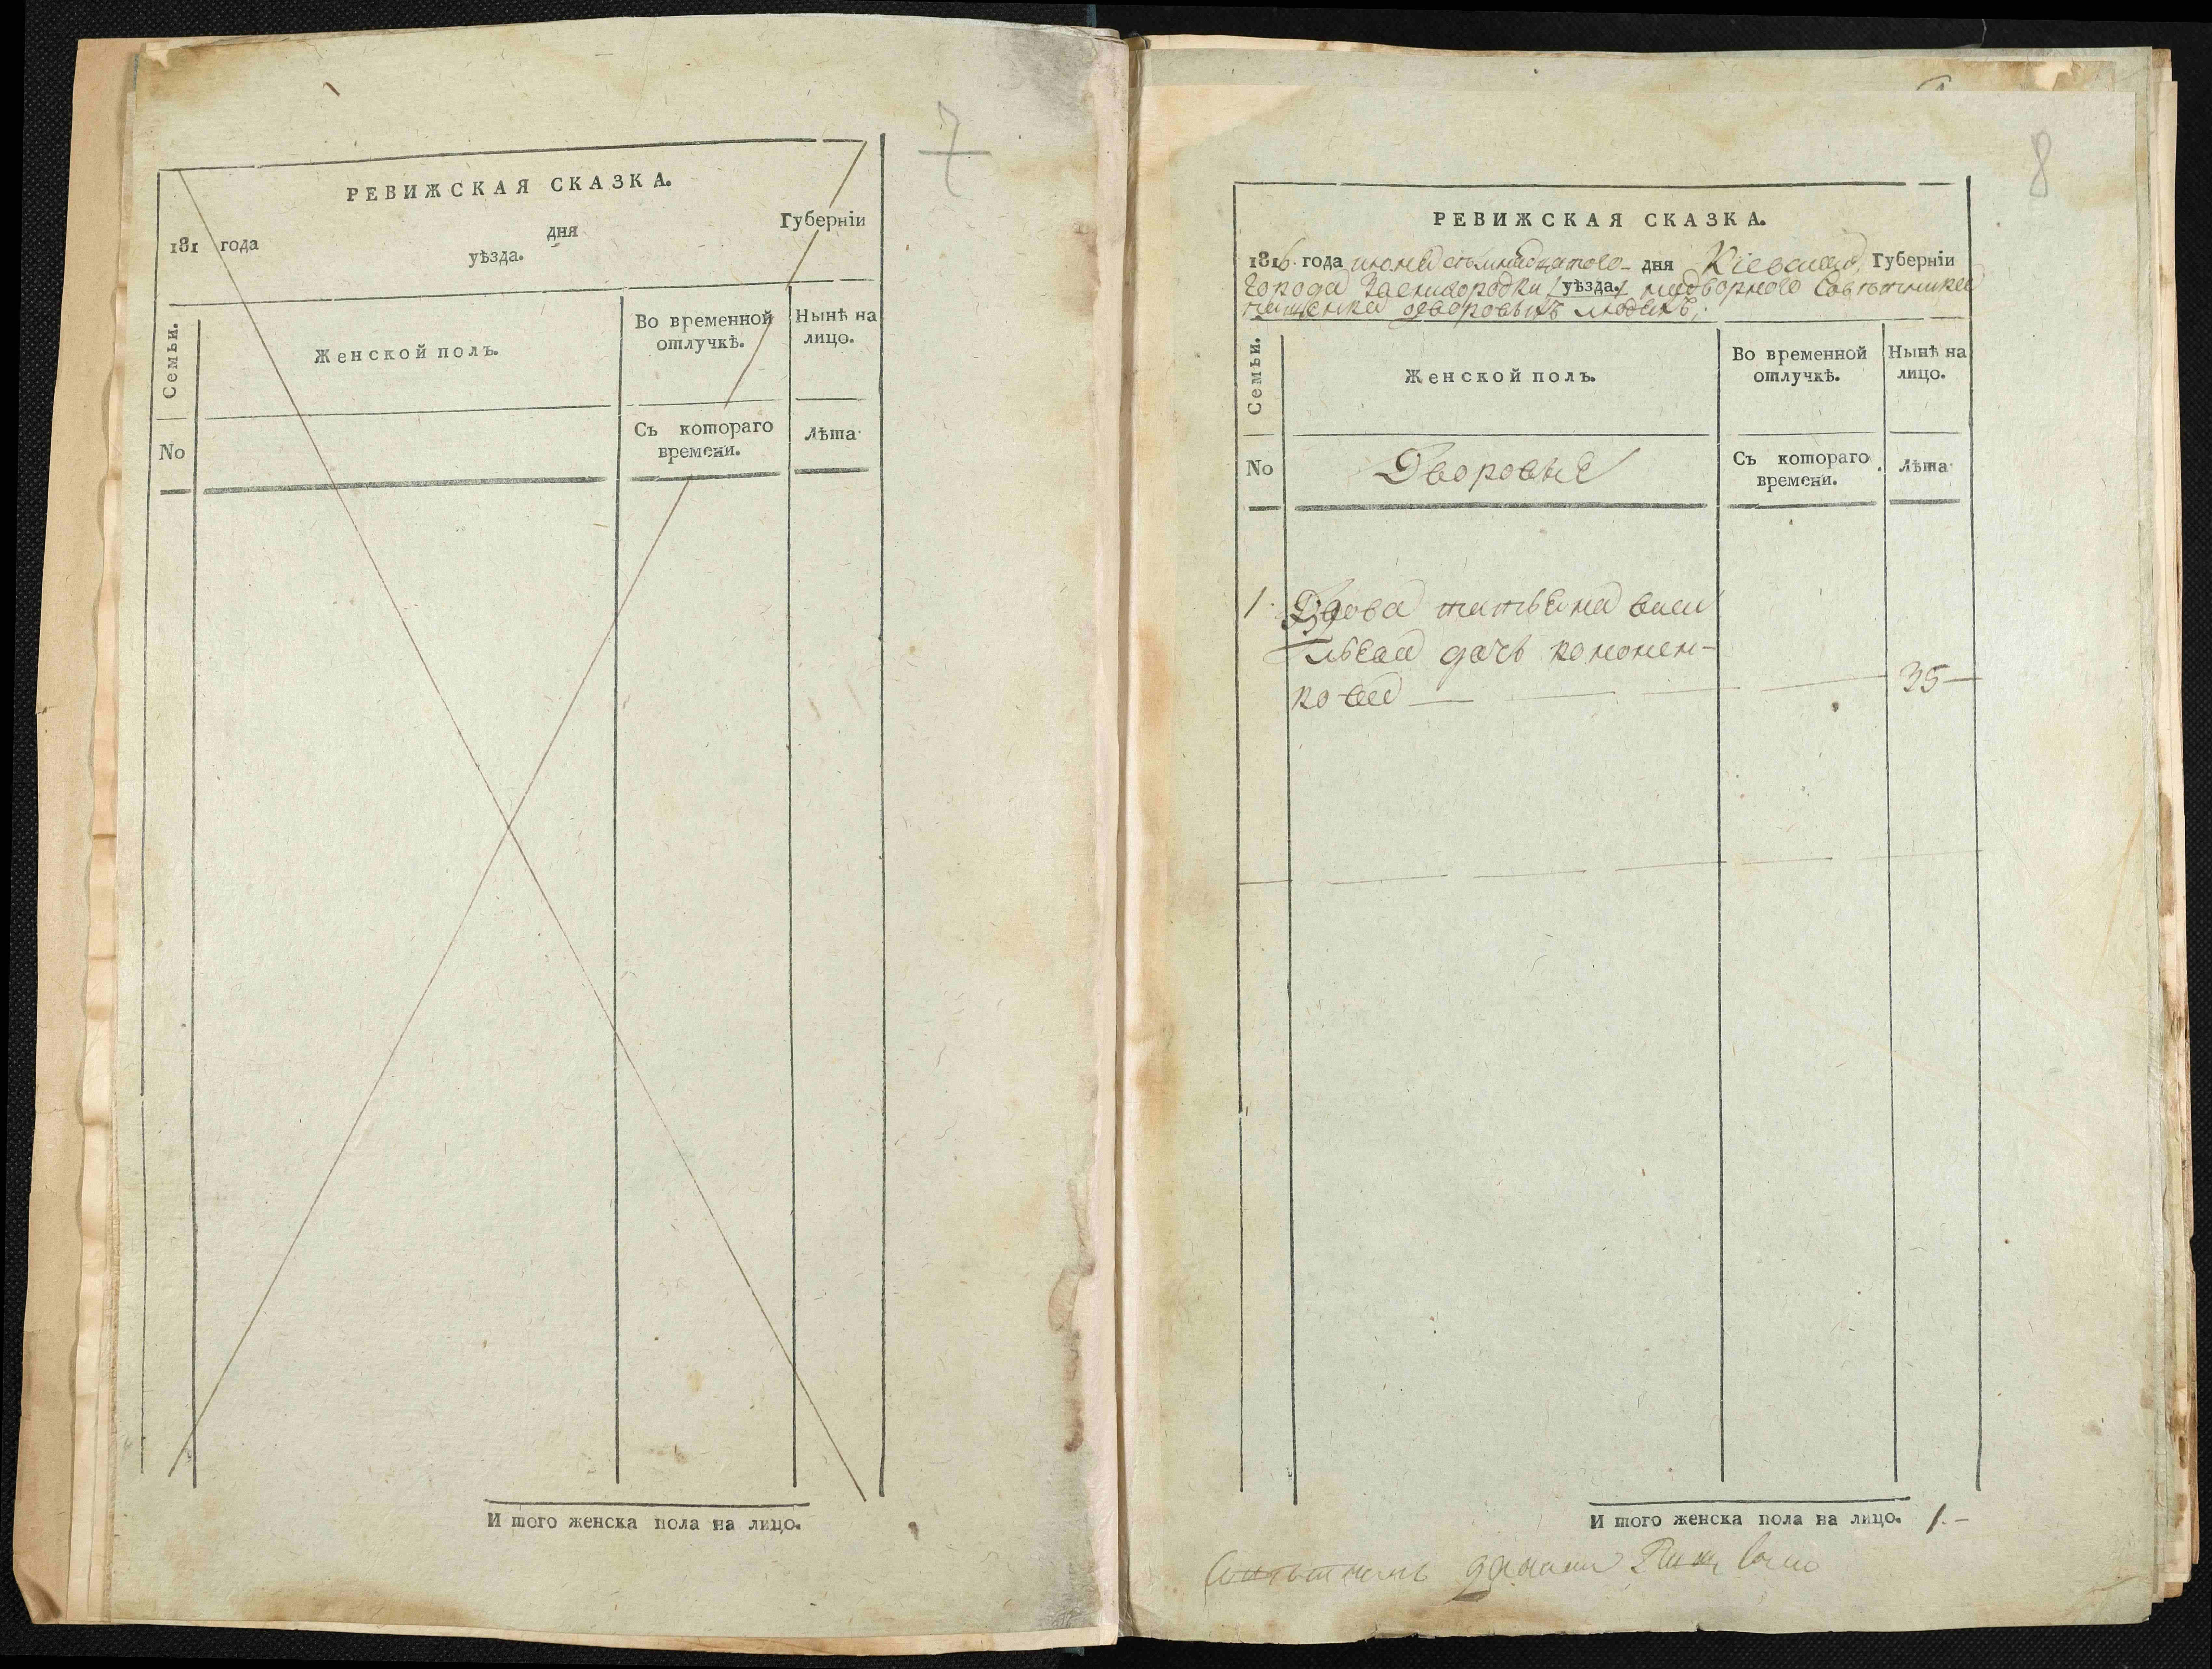 7
РЕВИЖСКАЯ СКАЗКА.
181 года дня Губерніи
уѣзда.
Семьи. Женской полъ. Во временной отлучкѣ. Нынѣ на лицо.
No Съ котораго времени. Лѣта
И того женска пола на лицо.
8
РЕВИЖСКАЯ СКАЗКА.
1816 года июня семнадцатого дня Кіевской Губерніи
города Звенигородки уѣзда. надворного Советника
дворовыхъ людехъ,
Семьи. Женской полъ. Во временной отлучкѣ. Нынѣ на лицо.
No Дворовые Съ котораго времени. Лѣта
1 Вдова татьяна васи
льева дочь кононен-
кова 35
И того женска пола на лицо. 1.